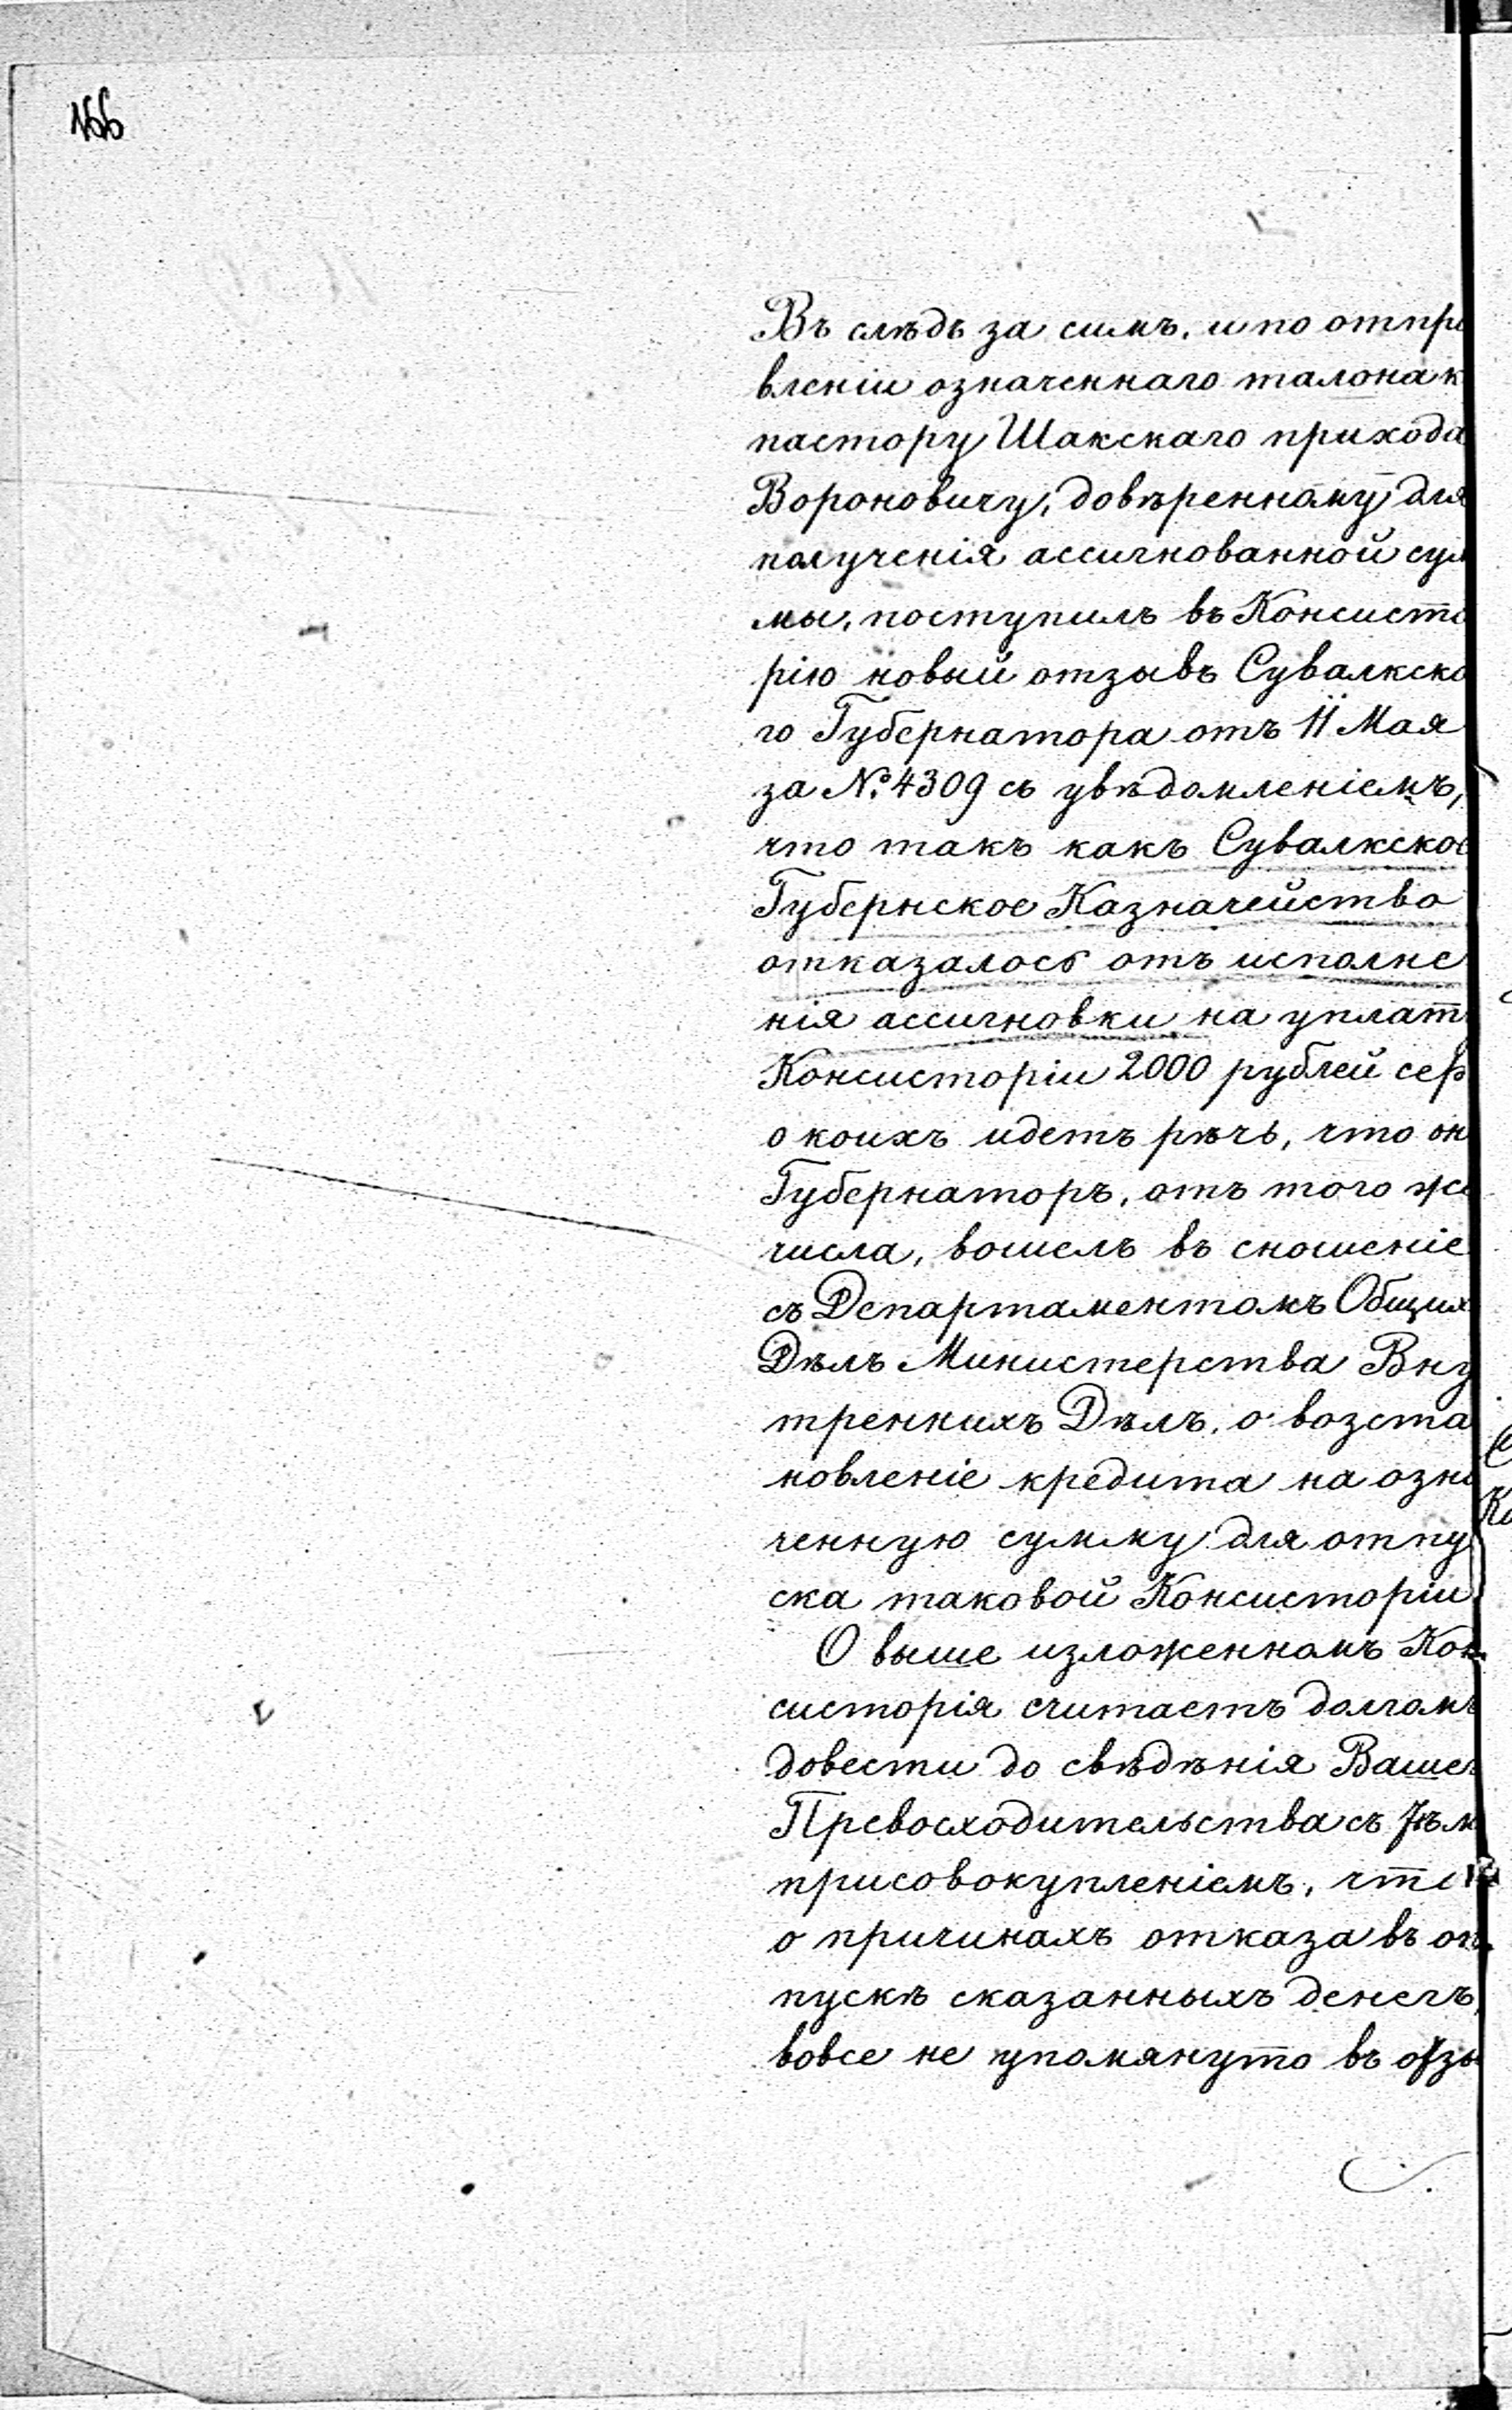 166
Въ слѣдъ за симъ, и по отпра
вленіи означеннаго талона к
пастору Шакскаго прихода
Вороновичу, довѣренному для
полученія ассигнованной сум
мы, поступилъ въ Консисто
рію новый отзывъ Сувалкска
го Губернатора отъ 11 Мая
за №. 4309 съ увѣдомленіемъ,
что такъ какъ Сувалкское
Губернское Казначейство
отказалось отъ исполне
нія ассигновки на уплат
Консисторіи 2000 рублей сер
о коихъ идетъ рѣчь, что он
Губернаторъ, отъ того же
числа, вошелъ въ сношеніе
съ Департаментомъ Общих
Дѣлъ Министерства Вну
треннихъ Дѣлъ, о возста
новленіе кредита на озна
ченную сумму для отпу
ска таковой Консисторіи
О выше изложенномъ Кон
систорія считаетъ долгомъ
довести до свѣдѣнія Вашег
Превосходительства съ тѣм
присовокупленіемъ, что
о причинахъ отказа въ от
пускѣ сказанныхъ денегъ,
вовсе не упомянуто въ отзы